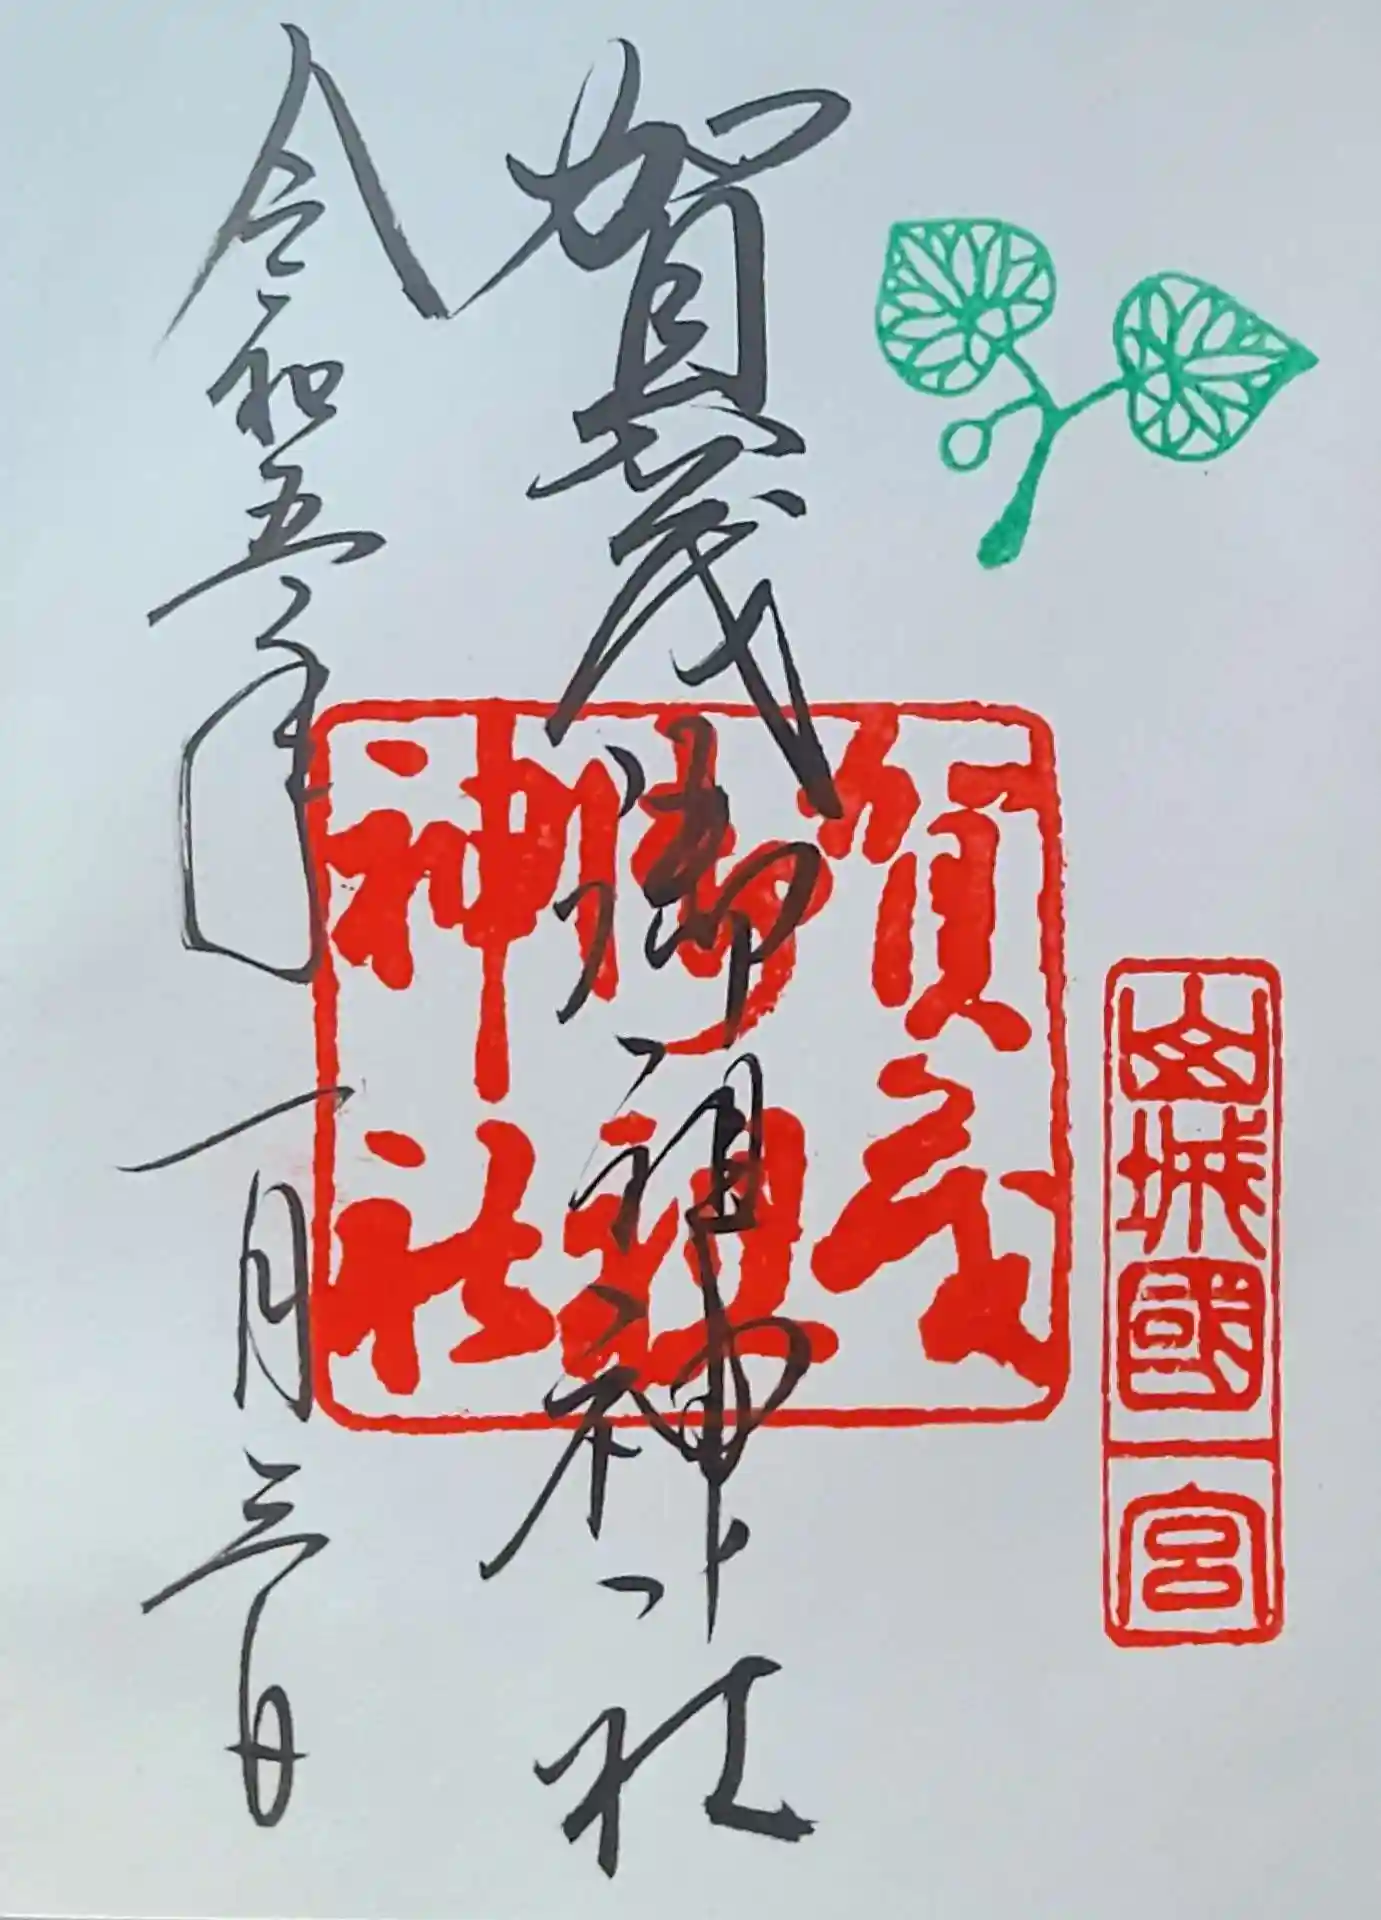 山城國
一宮
賀茂御祖神社
賀茂
御祖
神社
令和五年一月三日